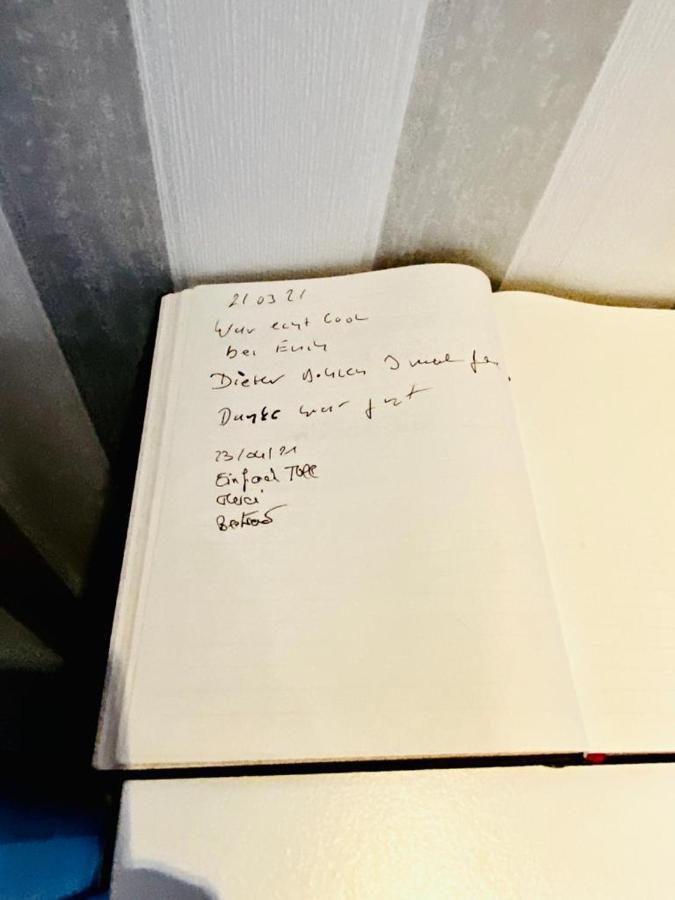 21 03 21
War echt Cool
bei Euch
Dieter
Danke war gut
23/04/21
Einfach Toll
Merci